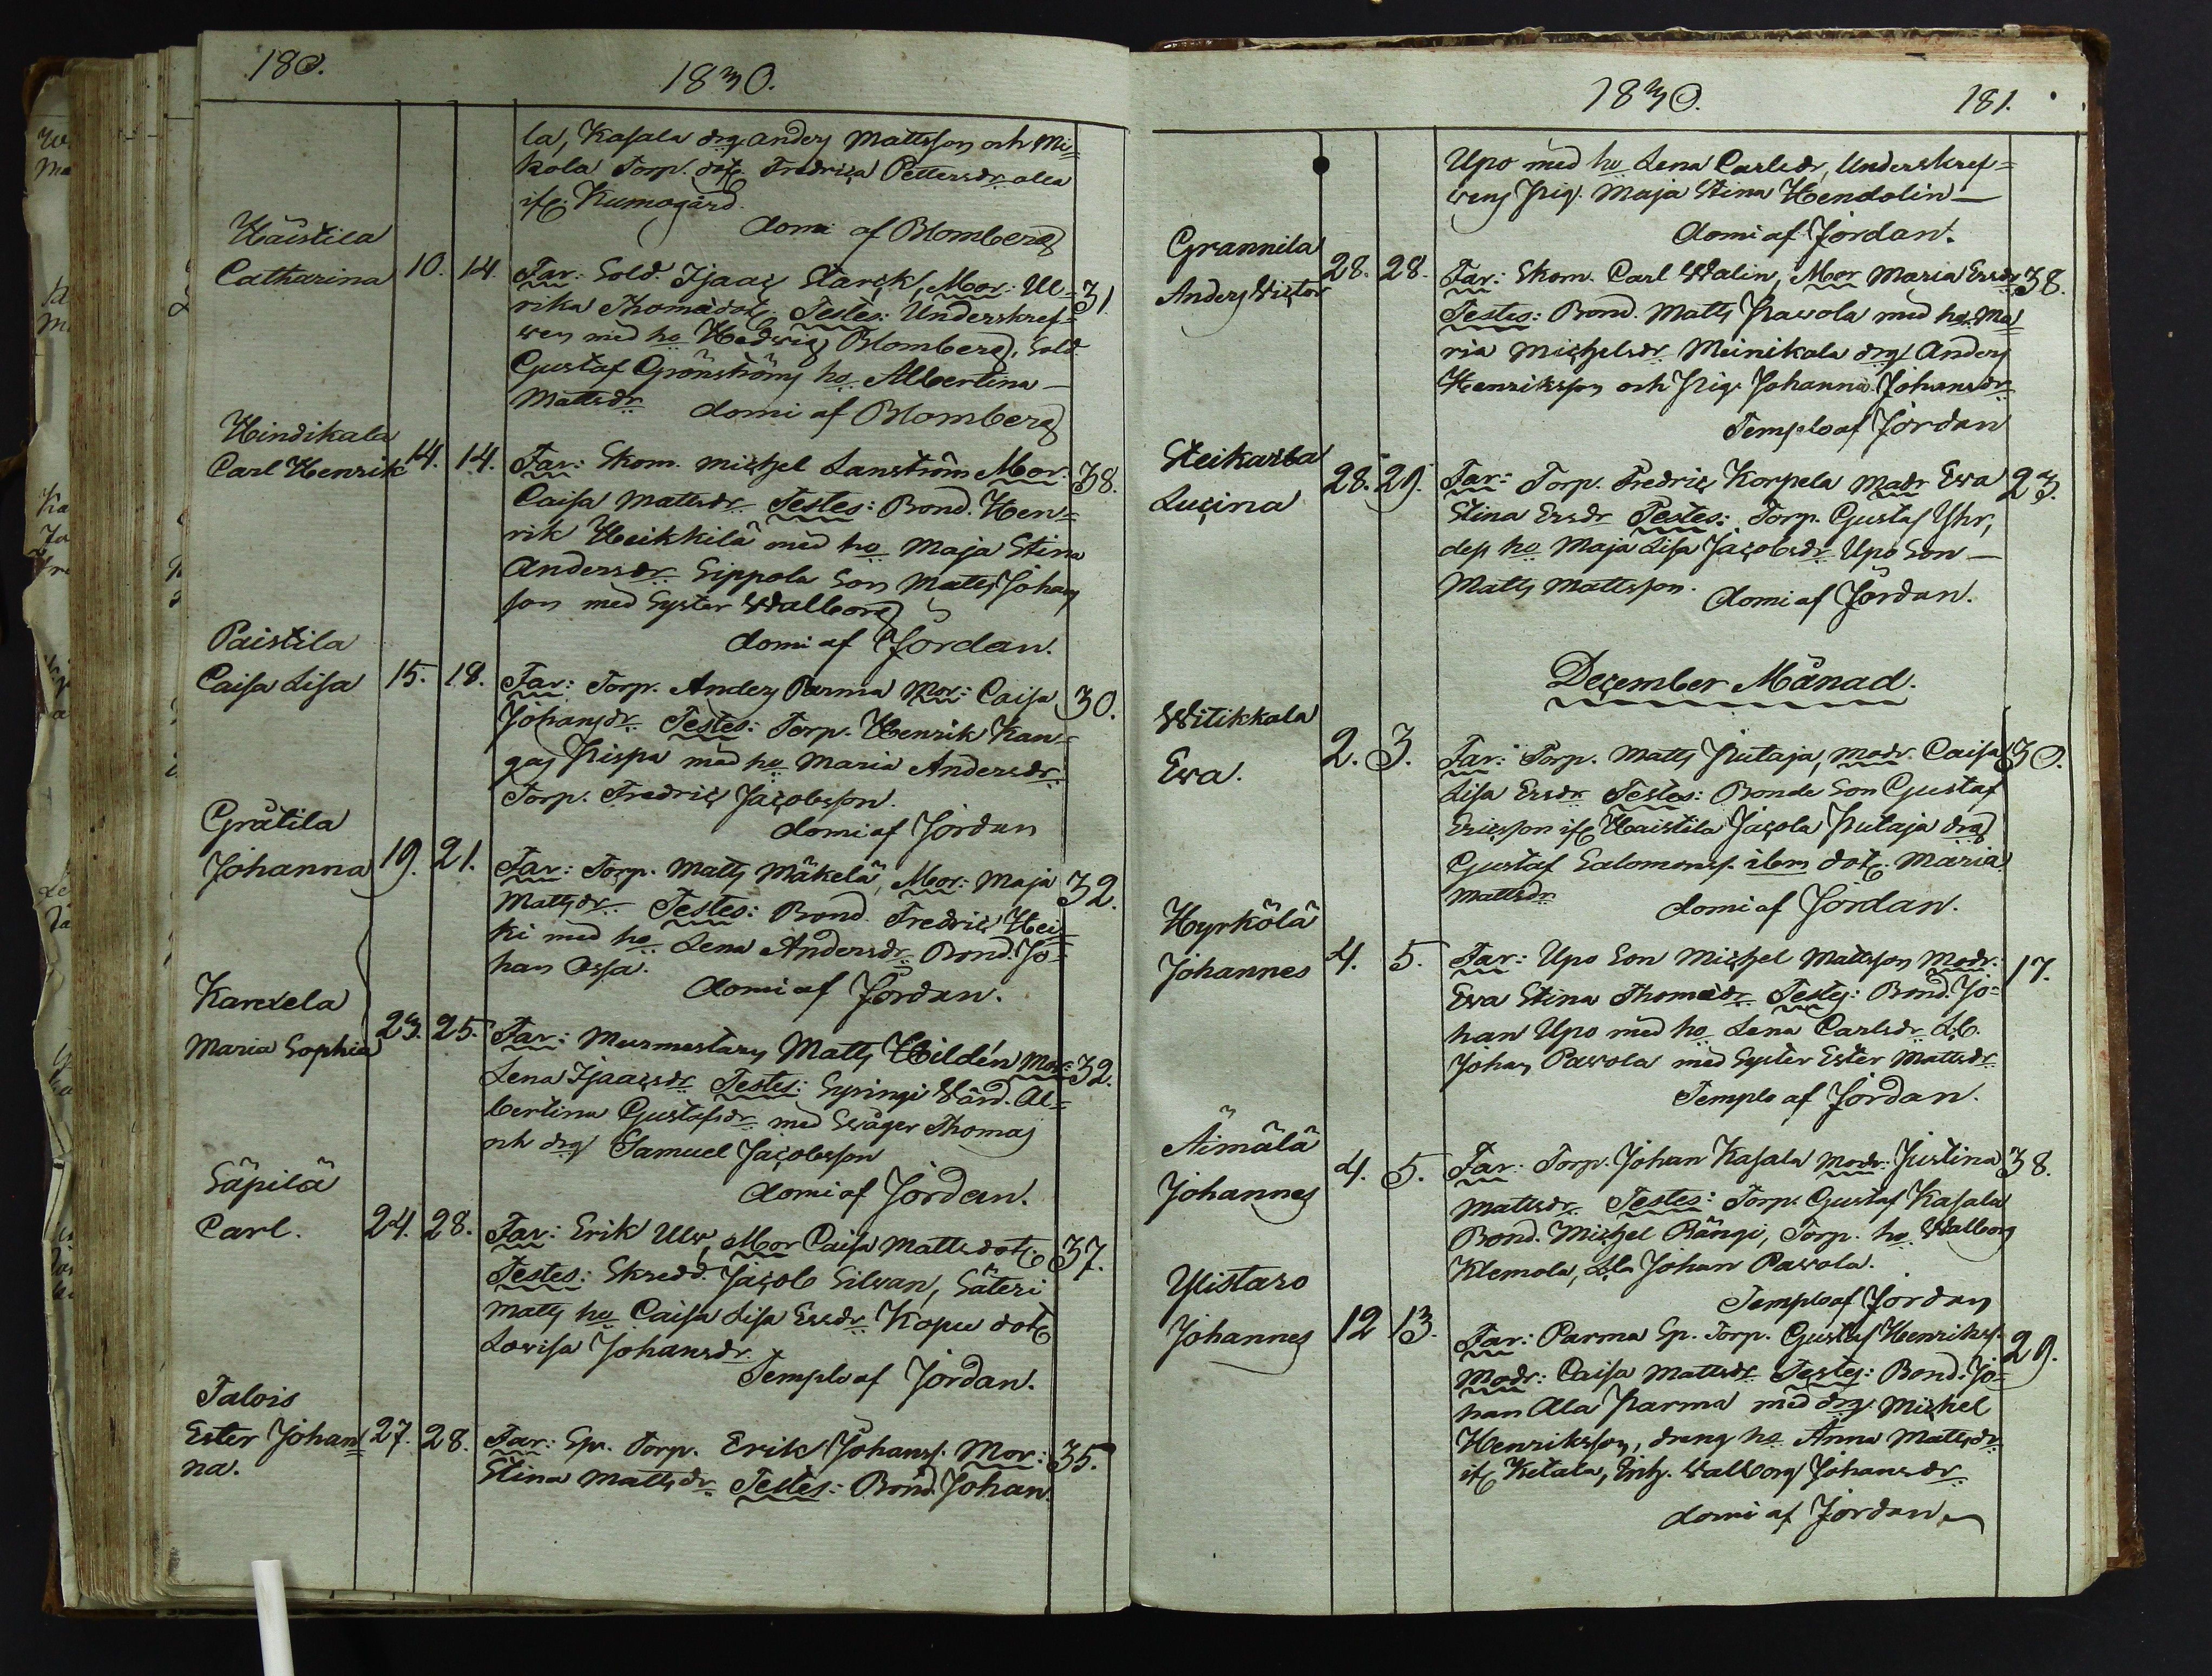 180.
1830.
la, Kasala drg Anders Mattsson och Mi=
kola Torp. dotr Fredrica Pettersdr alla
ifr. Kumogård.
domi af Blomberg
Häistila
Catharina 10. 14. Far: Sold. Isaac Starck, Mor: Ul= 31.
rika Thomædotr, Testes: Underskref=
wen med ho Hedwig Blomberg, Sold.
Gustaf Grönström ho Albertina
Mattsdr domi af Blomberg
Hindikala
Carl Henrik 14. 14. Far: Skom. Michel Lanström Mor: 38.
Caisa Mattsdr Testes: Bond. Hen=
rik Heikkilä med ho Maja Stina
Andersdr Sippola Son Matts Johans
son med Syster Walborg
domi af Jordan.
Paistila
Caisa Lisa 15. 18. Far: Torp. Anders Parma Mor: Caisa 30.
Johansdr Testes: Torp. Henrik Kan=
gas Pispa med ho Maria Andersdr
Torp. Fredric Jacobsson.
domi af Jordan
Grätila
Johanna 19. 21. Far: Torp. Matts Mäkelä, Mor: Maja 32.
Mattsdr Testes: Bond. Fredric Hei=
ki med ho Lena Andersdr Bond. Jo=
han Ossa.
domi af Jordan.
Karhela
Maria Sophia 23. 25. Far: Murmestaren Matts Hildén Mor: 32.
Lena Isaacsdr Testes: Syringi Wärd. Al=
bertina Gustafsdr med Swåger Thomas
och drg Samuel Jacobsson
domi af Jordan.
Säpilä
Carl. 24. 28. Far: Erik Ulv, Mor Caisa Mattsdotr 37.
Testes: Skredd. Jacob Silvan, Säteri
Matts ho Caisa Lisa Ersdr Kopu dotr
Lovisa Johansdr.
Templo af Jordan.
Talois
Ester Johan= 27. 28. Far: Sp. Torp. Erik Johanss. Mor: 35.
na. Stina Mattsdr Testes: Bond. Johan
1830. 181.
Upo med ho Lena Carlsdr, Underskref=
wens Pig. Maja Stina Hendolin
domi af Jordan.
Grannila
Anders Victor 28. 28. Far: Skom. Carl Walin, Mor Maria Ersdr 38.
Testes: Bond. Matts Pawola med ho. Ma=
ria Michelsdr Meinikala drg Anders
Henriksson och Pig. Johanna Johansdr
Templo af Jordan
Steikarla
Lucina 28. 29. Far: Torp. Fredric Korpela Modr Ewa 23.
Stina Ersdr Testes: Torp. Gustaf Yhr,
dess ho Maja Lisa Jacobsdr Upo Son
Matts Mattsson. domi af Jordan.
December Månad.
Witikkala
Ewa. 2. 3. Far: Torp. Matts Putaja, Modr. Caisa 30.
Lisa Ersdr Testes: Bonde Son Gustaf
Ericsson ifr Haistila Jacola Putaja drg
Gustaf Salomonss. ibm dotr. Maria
Mattsdr domi af Jordan.
Hyrkölä
Johannes 4. 5. Far: Upo Son Michel Mattsson Modr: 17.
Ewa Stina Thomædr Testes: Bond. Jo=
han Upo med ho Lena Carlsdr L.b.
Johan Pawola med Syster Ester Mattsdr
Templo af Jordan.
Äimälä
Johannes 4. 5. Far: Torp. Johan Kasala Modr: Justina 38.
Mattsdr Testes: Torp. Gustaf Kasala
Bond. Michel Rängi, Torp. ho Walborg
Klemola, L.b Johan Pawola.
Templo af Jordan
Ylistaro
Johannes 12 13. Far: Parma Sp. Torp. Gustaf Henrikss. 29.
Modr: Caisa Mattsdr Testes: Bond. Jo=
han Ala Parma med drg Michel
Henriksson, dreng ho Anna Mattsdr
ifr Ketala, Walborg Johansdr
domi af Jordan